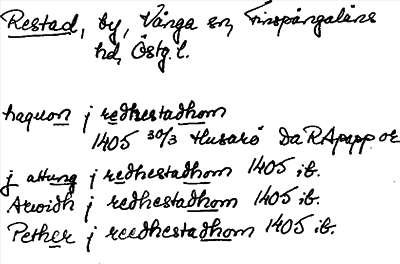 Restad, by, Vånga sn, Finspångaläns
hd, Östg.l.
haquon j redhestadhom
1405 30/3 Husarö DaRApapp or
j attung j redhestadhom 1405 ib.
Arwidh j redhestadhom 1405 ib.
Pether j reedhestadhom 1405 ib.